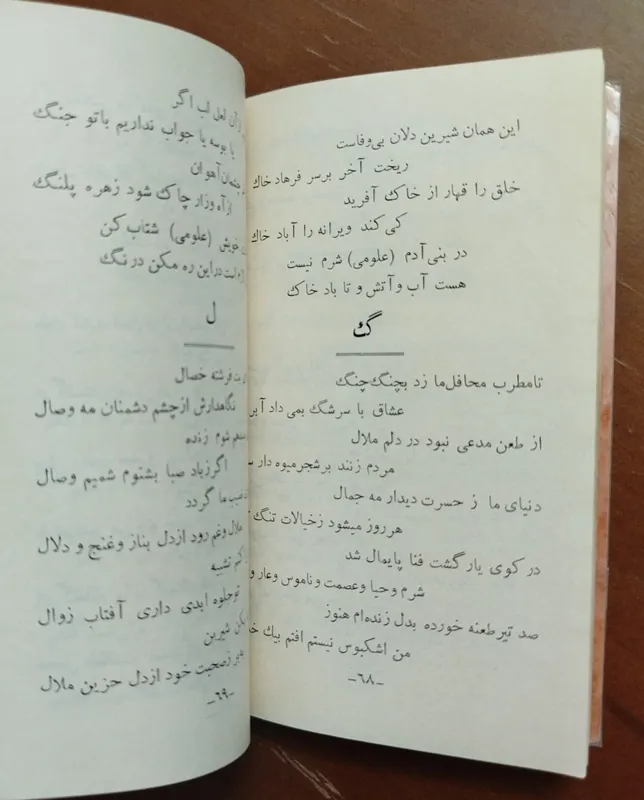 این همان شیرین دلان بی‌وفاست
ریخت آخر برسر فرهاد خاک
خلق را قهار از خاک آفرید
کی کند ویرانه را آباد خاک
در بنی‌آدم (علومی) شرم نیست
هست آب و آتش و تا باد خاک
گ
تامطرب محافل‌ما زد بچنگ‌چنگ
عشاق با سرشگ بمی داد
از طعن مدعی نبود در دلم ملال
مردم زنند برشجرمیوه دار
دنیای ما ز حسرت دیدار مه جمال
هرروز میشود زخیالات تنگ
در کوی یار گشت فنا پایمال شد
شرم وحیا وعصمت وناموس وعار و
صد تیر طعنه خورده بدل زنده‌ام هنوز
من اشکبوس نیستم افتم بیک
-۶۸-
آن لعل لب اگر
یا بوسه یا جواب نداریم باتو جنگ
آهوان
ازآه وزار چاک شود زهره پلنگ
خویش (علومی) شتاب کن
است دراین ره مکن درنگ
ل
فرشته خصال
نگاهدارش ازچشم دشمنان مه وصال
شوم زنده
اگرزباد صبا بشنوم شمیم وصال
ما گردد
ملال وغم رود ازدل بناز وغنج و دلال
تشبیه
توجلوه ابدی داری آفتاب زوال
شیرین
زصحبت خود ازدل حزین ملال
-۶۹-